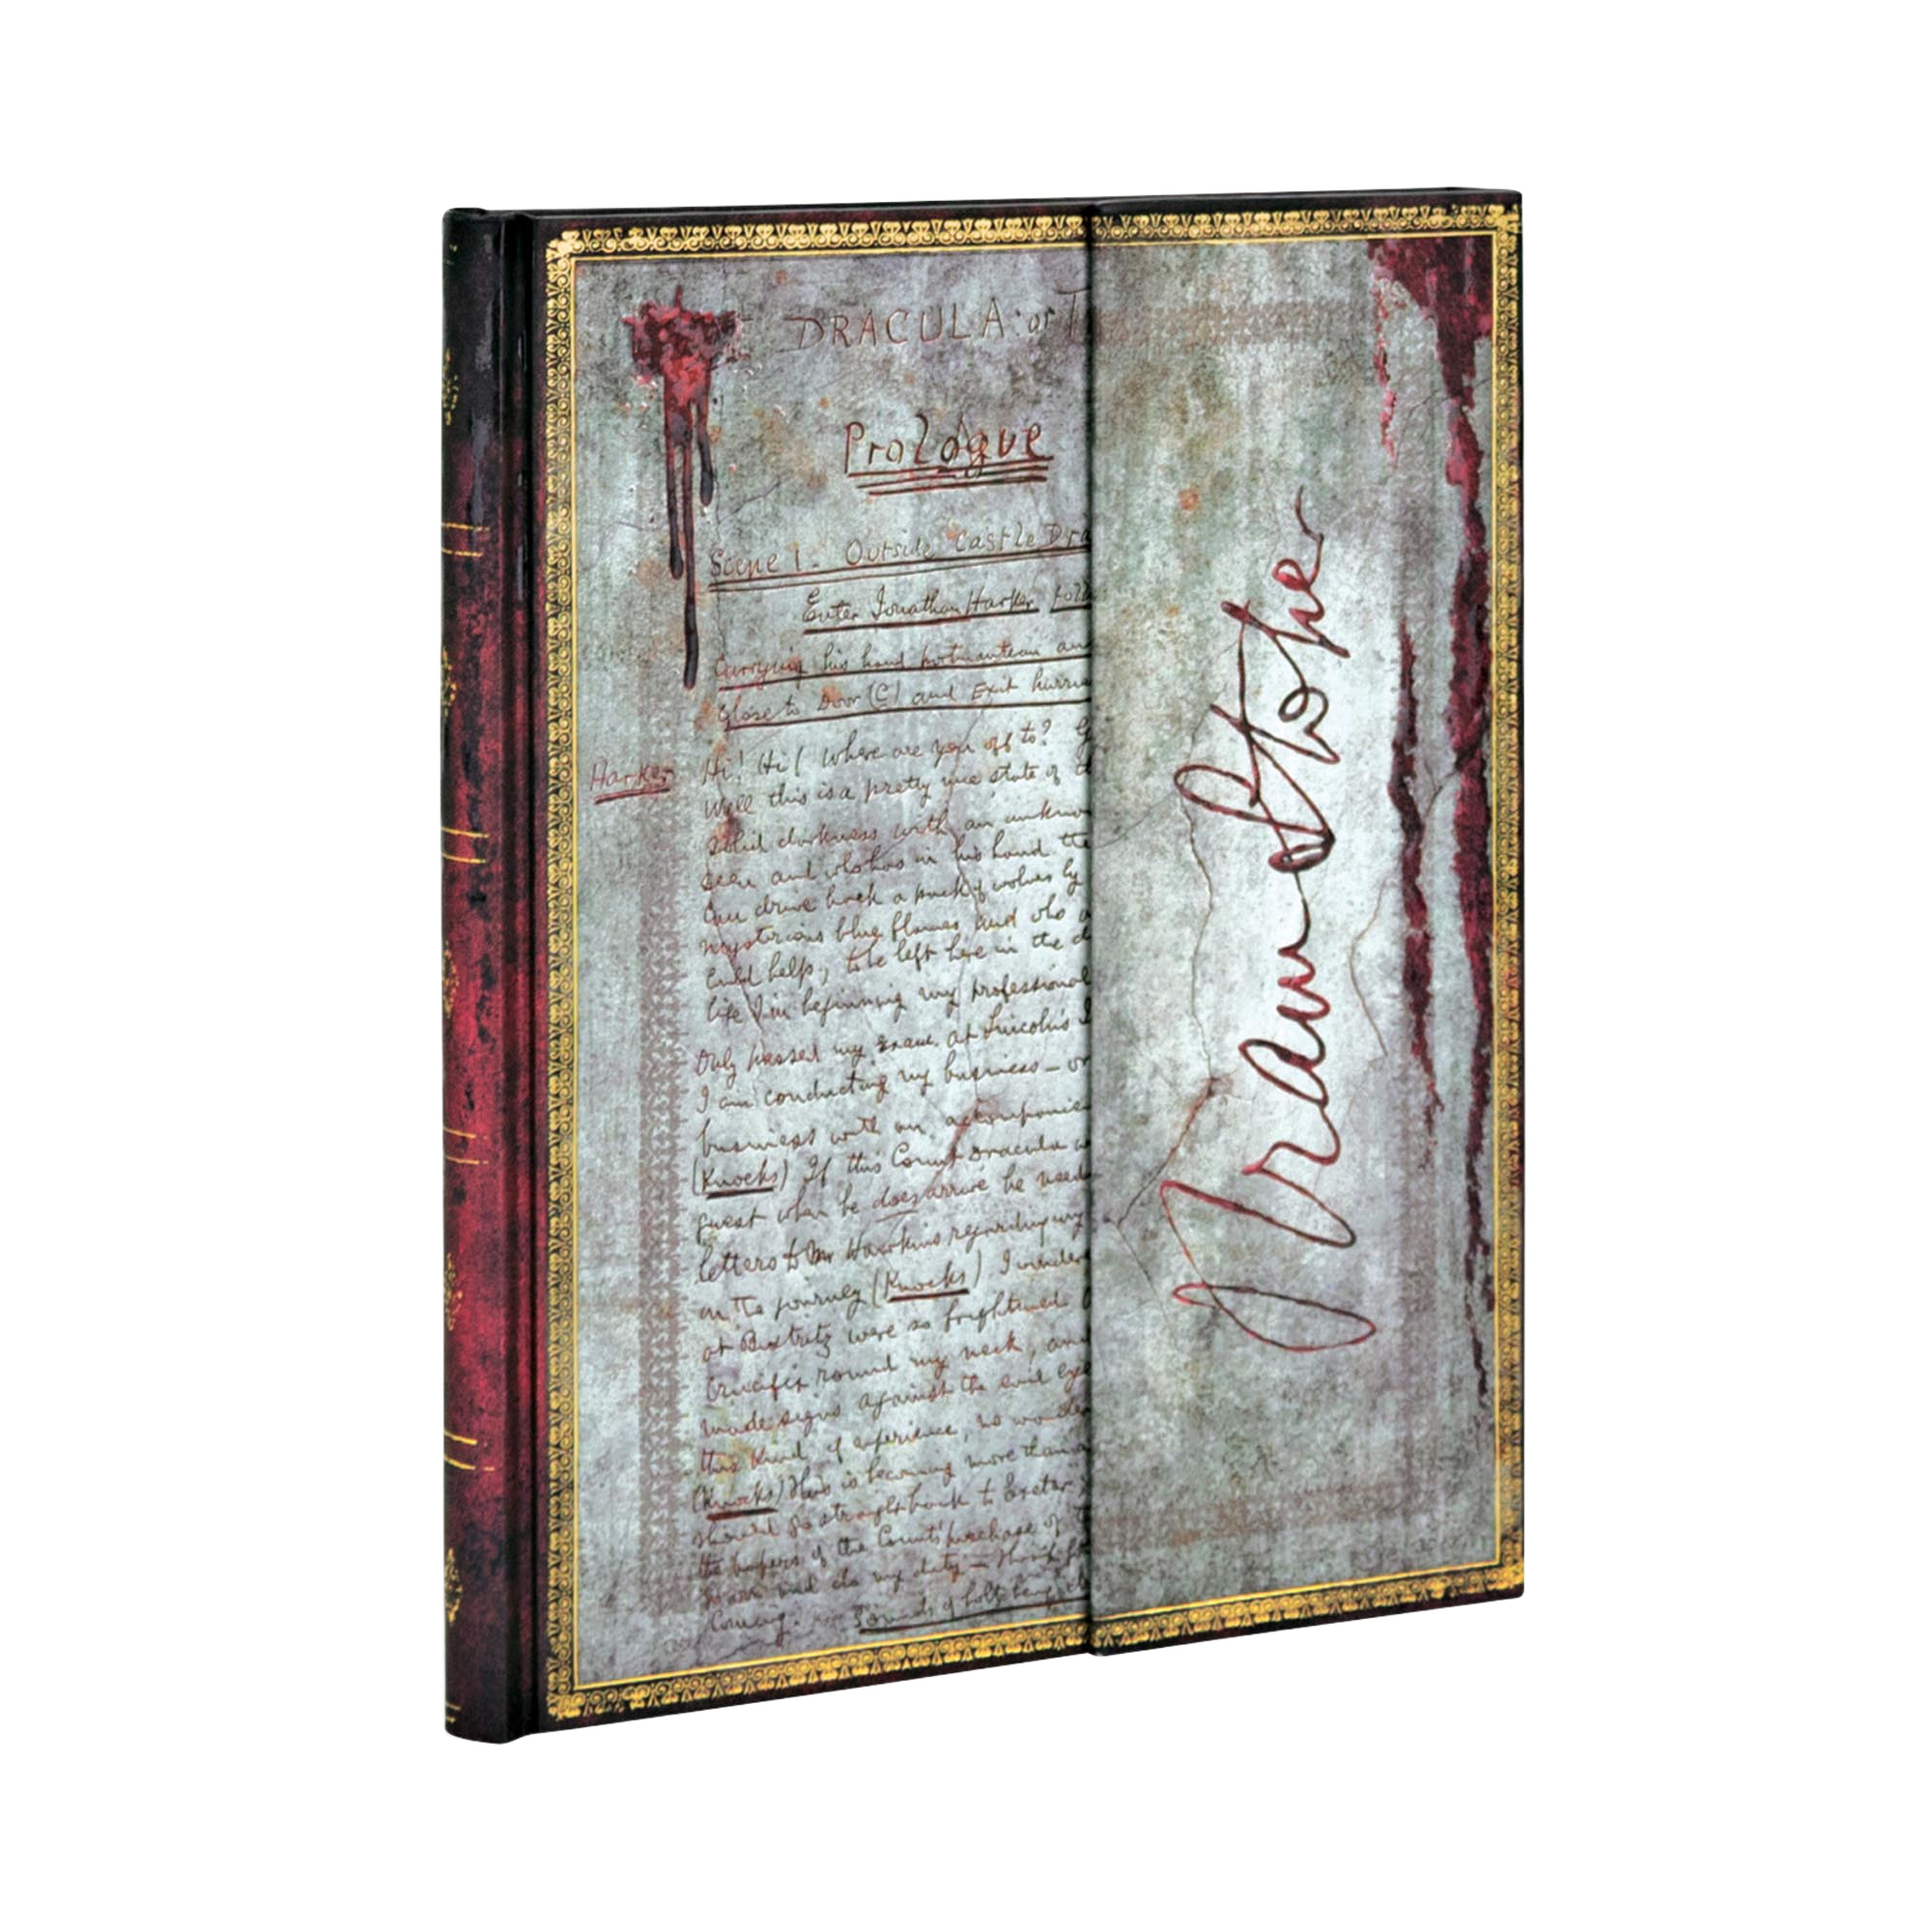 DRACULA: or T
Prologue
Scene 1. Outside Castle Dra
Enter Jonathan Harker foll
Carrying his hand portmanteau an
Close to Door (C) and Exit hurrie
Harker
Hi! Hi! Where are you off to? G
Well this is a pretty nice state of t
solid darkness with an unknow
seen and who has in his hand the
Can drive back a pack of wolves by
mysterious blue flames and who a
Could help, to be left here in the d
life I'm beginning my professional
Only passed my Exam. at Lincoln's I
I am conducting my business — or
business with an accompanie
(Knocks) If this Count Dracula
guest when he does arrive he need
letters to Mr Hawkins regarding my
on the journey (Knocks) I wonder
at Bistritz were so frightened
Crucifix round my neck, and
made signs against the evil eye
this kind of experience, no wonder
(Knocks) This is becoming more than a
should go straight back to Exeter
the papers of the Count's purchase of
and do my duty —
Coming. Sounds of bolts being
Bram Stoker